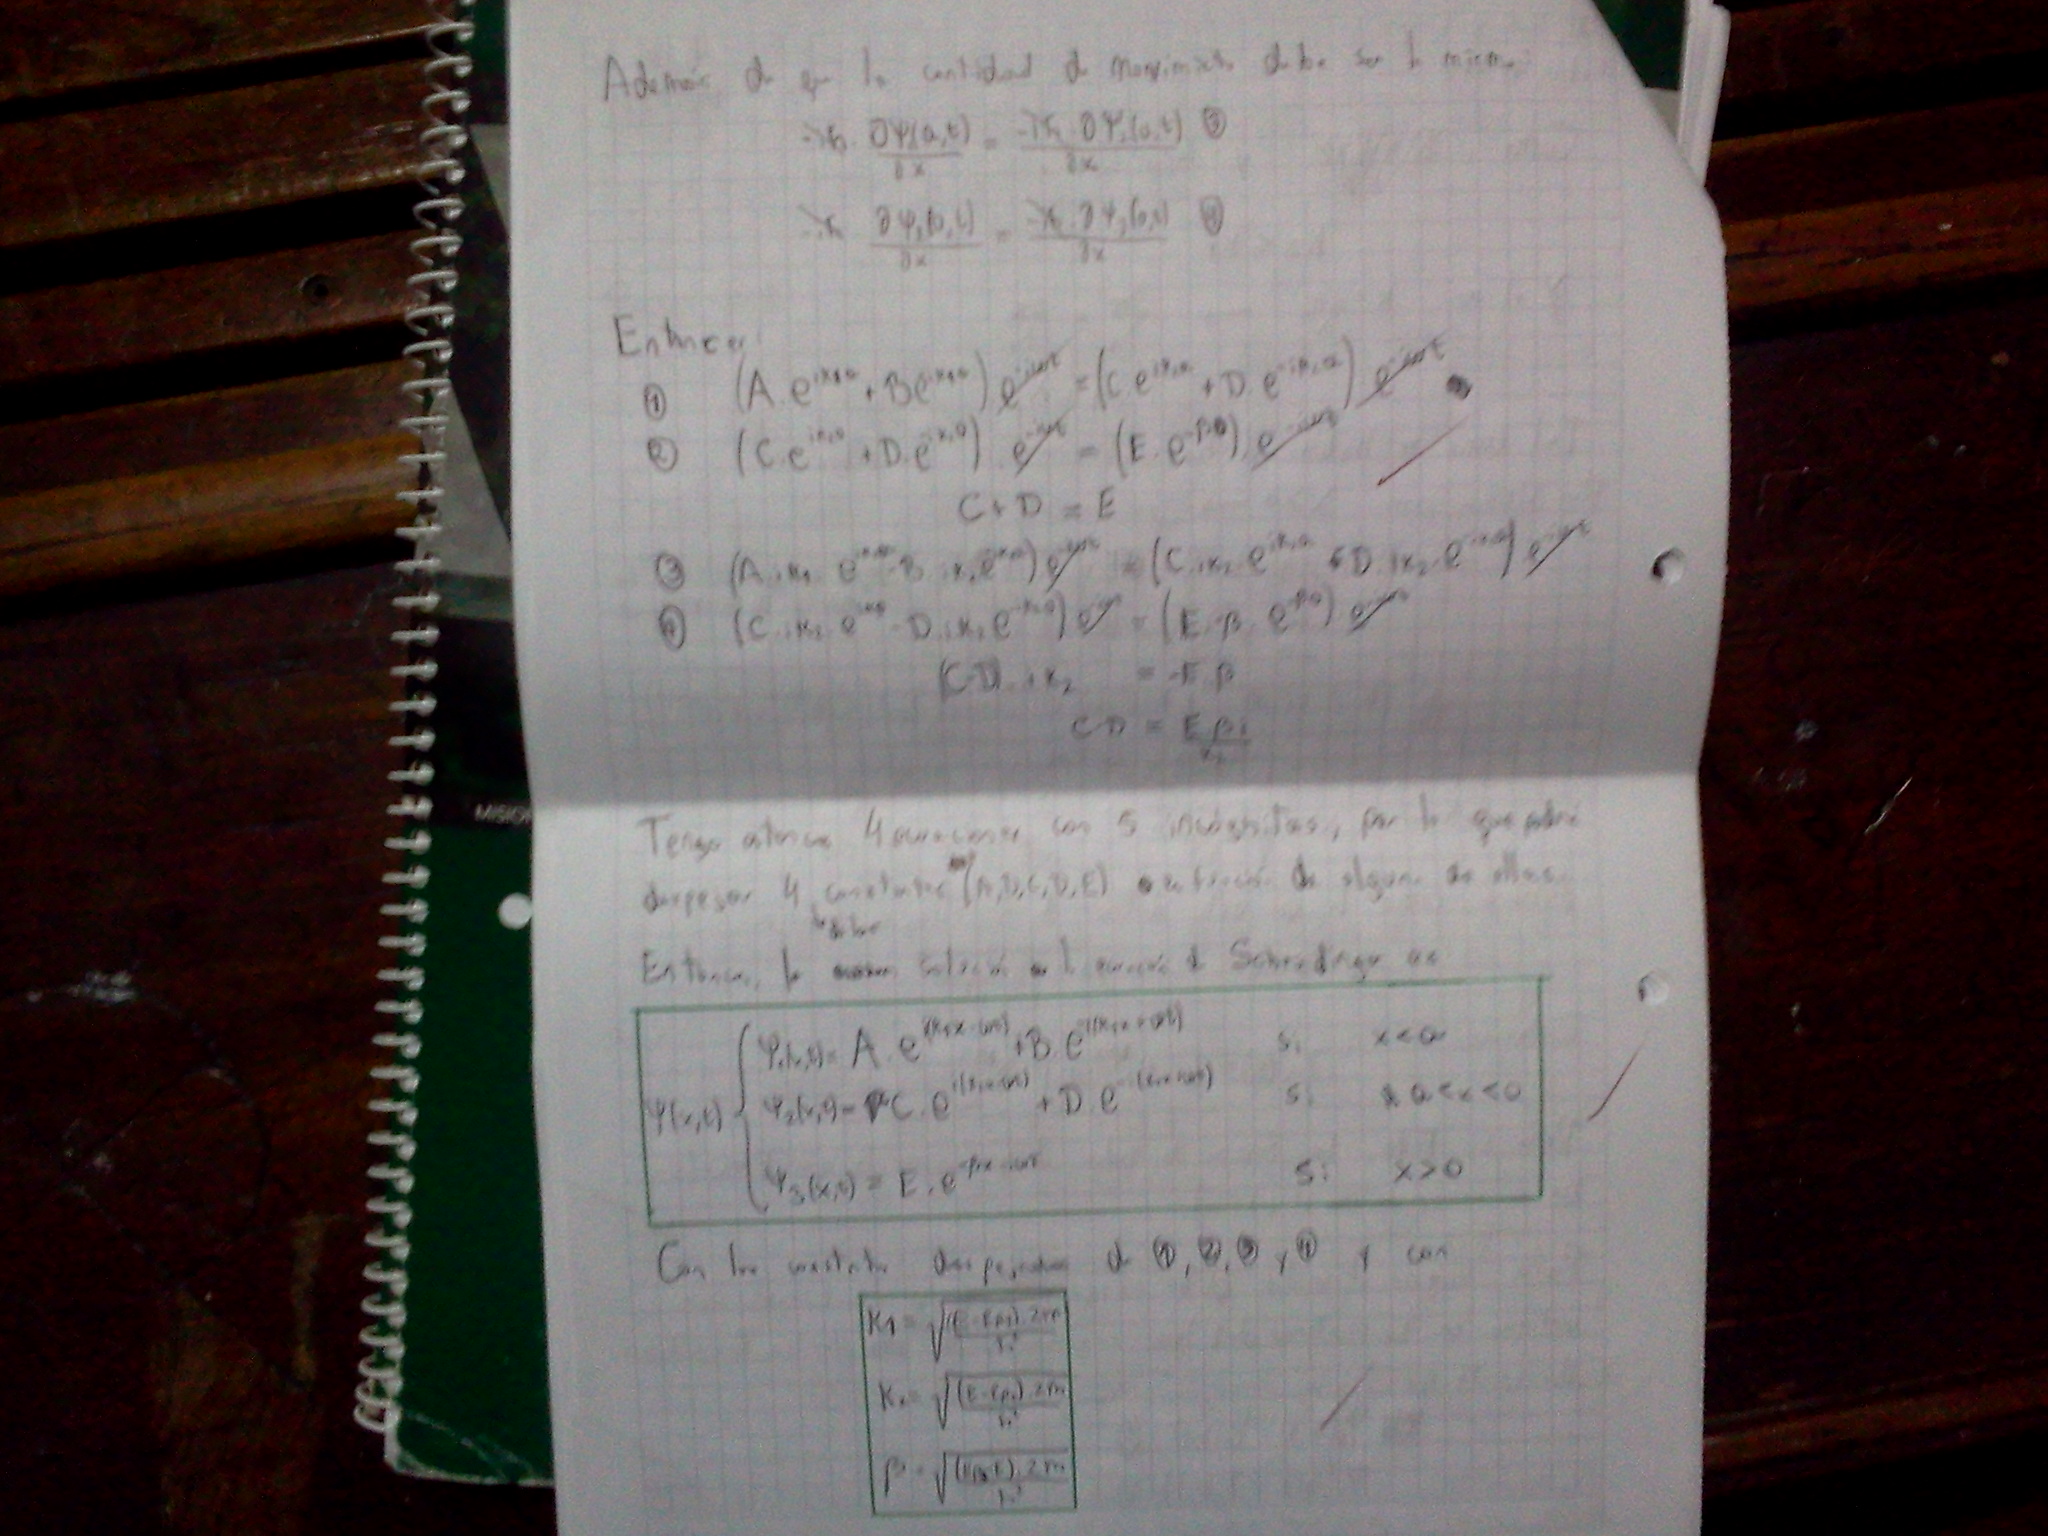 Además de que la cantidad de movimiento debe ser la misma:
-iħ . ∂Ψ₁(a,t)/∂x = -iħ . ∂Ψ₂(a,t)/∂x ③
-iħ ∂Ψ₂(0,t)/∂x = -iħ . ∂Ψ₃(0,t)/∂x ④
Entonces:
① (A.e^{ik₁a} + B e^{-ik₁a}) e^{-iωt} = (C.e^{ik₂a} + D.e^{-ik₂a}) e^{-iωt}
② (C.e^{ik₂0} + D.e^{-ik₂0}) . e^{-iωt} = (E.e^{-β0}) . e^{-iωt}
C + D = E
③ (A.ik₁ e^{ik₁a} - B.ik₁ e^{-ik₁a}) e^{-iωt} = (C.ik₂ e^{ik₂a} - D.ik₂ e^{-ik₂a}) e^{-iωt}
④ (C.ik₂ e^{ik₂0} - D.ik₂ e^{-ik₂0}) e^{-iωt} = (E.-β. e^{-β0}) e^{-iωt}
(C-D).ik₂ = -E.β
C-D = E βi/k₂
MISIO
Tengo entonces 4 ecuaciones con 5 incógnitas, por lo que podré
despejar 4 constantes (A,B,C,D,E) en función de alguna de ellas.
de las
Entonces, la solución a la ecuación de Schrodinger es
Ψ(x,t) { Ψ₁(x,t) = A.e^{i(k₁x-ωt)} + B.e^{-i(k₁x+ωt)} si x<a
Ψ₂(x,t) = C.e^{i(k₂x-ωt)} + D e^{-i(k₂x+ωt)} si a<x<0
Ψ₃(x,t) = E.e^{-βx-iωt} si x>0
Con las constantes despejadas de ①,②,③ y ④ y con
k₁ = √((E-Ep₁).2m/ħ²)
k₂ = √((E-Ep₂).2m/ħ²)
β = √((Ep₃-E).2m/ħ²)